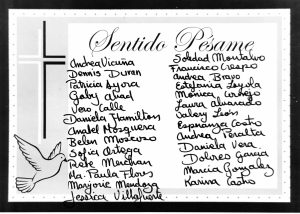 Sentido Pésame
Andrea Vicuña
Dennis Duran
Patricia Ayora
Gaby Abad
Vero Calle
Daniela Hamilton
Anabel Mosquera
Belen Moscoso
Sofia Ortega
Rene Merchan
Ma. Paula Flores
Marjorie Mendoza
Jessica Villafuerte
Soledad Montalvo
Francisco Crespo
Andrea Bravo
Estefania Loyola
Monica Cornejo
Laura Alvarado
Valery León
Esperanza Casto
Andrea Peralta
Daniela Vera
Dolores Garcia
Marcia Gonzalez
Karina Castro